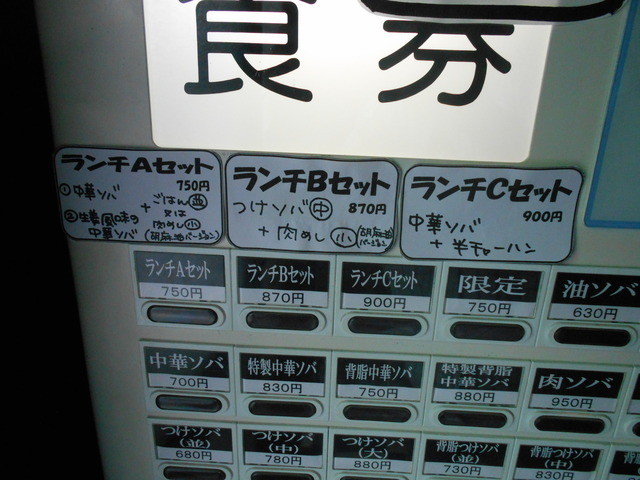 食券
ランチAセット
750円
①中華ソバ
②生姜風味の
中華ソバ
+
ごはん(並)
又は
肉めし(小)
(胡麻油バージョン)
ランチBセット
つけソバ(中) 870円
+ 肉めし(小) (胡麻油バージョン)
ランチCセット
900円
中華ソバ
+ 半チャーハン
ランチAセット
750円
ランチBセット
870円
ランチCセット
900円
限定
750円
油ソバ
630円
中華ソバ
700円
特製中華ソバ
830円
背脂中華ソバ
750円
特製背脂
中華ソバ
880円
肉ソバ
950円
つけソバ
(並)
680円
つけソバ
(中)
780円
つけソバ
(大)
880円
背脂つけソバ
(並)
730円
背脂つけソバ
(中)
830円